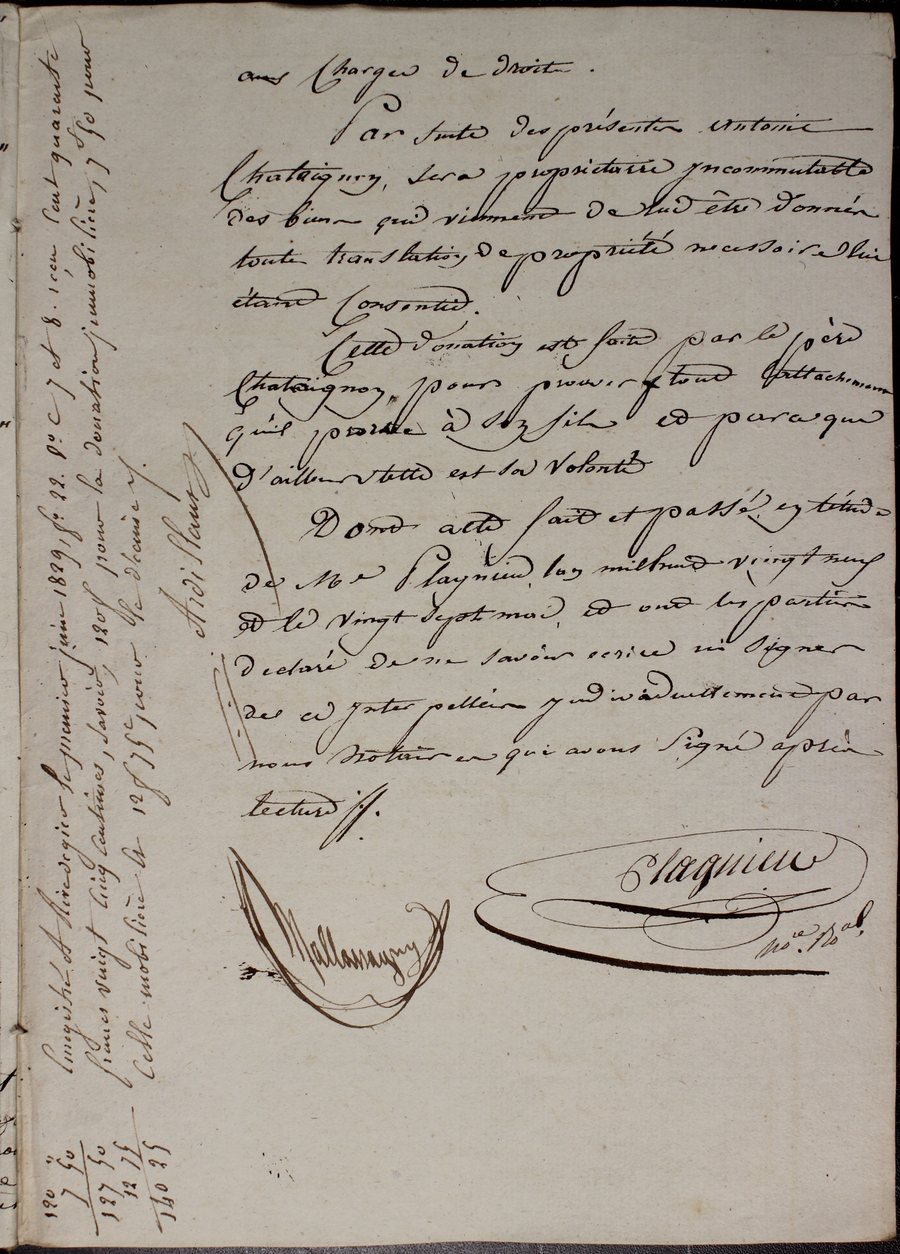 aux Charges de droit.
Par suite des présentes Antoine
Chataignon, sera propriétaire yncommutable
des biens qui viennent de lui être donnés
toute translation de propriété necessaire lui
étant Consentie.
Cette donation est faite par le père
Chataignon, pour prouver tout l'attachement
qu'il porte à son fils et parceque
d'ailleurs telle est sa volonté
Dont acte fait et passé en l'étude
de Me Plagnieu, l'an mil huit vingt neuf
et le vingt sept mai, et ont les parties
declaré de ne savoir ecrire ni signer
de ce ynterpellées yndividuellement par
nous Notaires qui avons Signé après
lecture ./.
Plagnieu
Nore. Roal.
Mallassagny
Enregistré à St le premier juin 1829, fo. 22. Ro. C. 7 et 8. reçu cent quarante
francs vingt cinq centimes, savoir, 120f pour la donation immobilière, 7f 50 pour
celle mobilière et 12f 75c pour le décime ./.
120 "
7 50
127 50
12 75
140 25